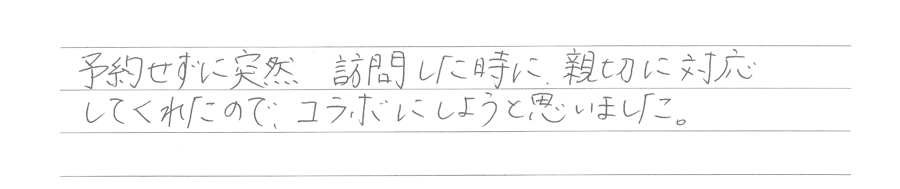 予約せずに突然 訪問した時に、親切に対応
してくれたので、コラボにしようと思いました。